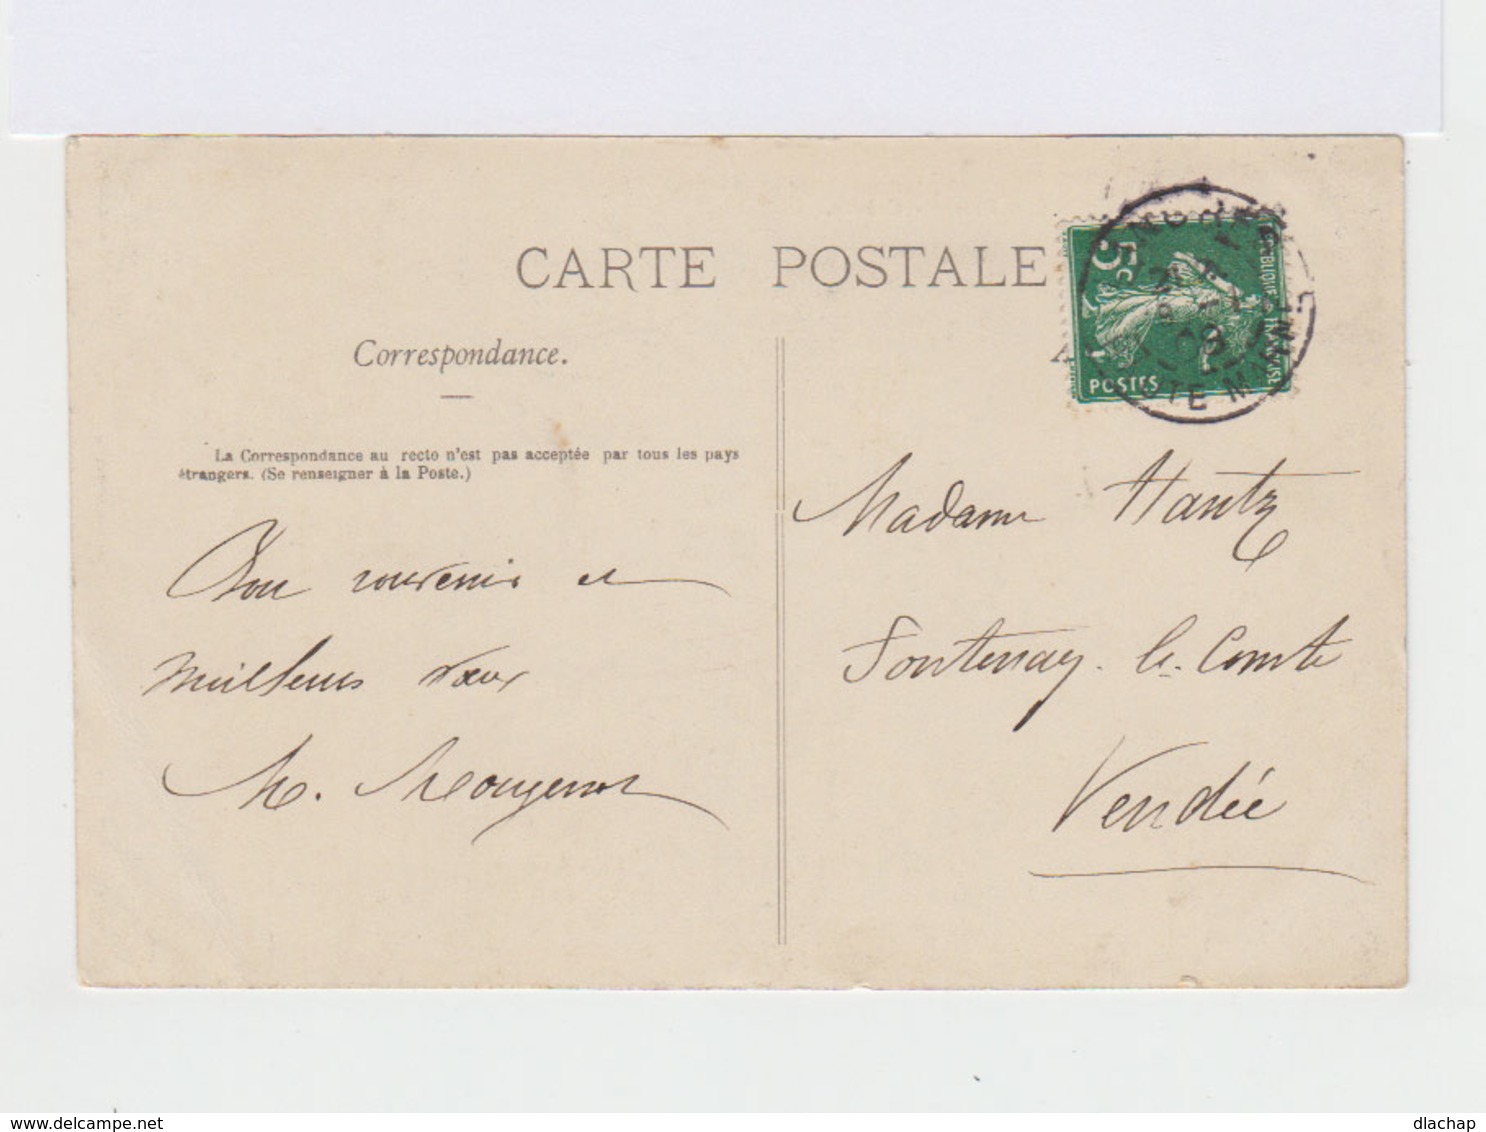 CARTE POSTALE
Correspondance.
La Correspondance au recto n'est pas acceptée par tous les pays
étrangers. (Se renseigner à la Poste.)
5c
POSTES
09
HTE MARNE
Madame Hantz
Bon souvenir et
Fontenay-le-Comte
meilleurs vœux
M. Mougenot
Vendée
dlachap